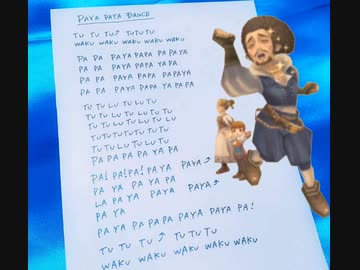 PAYA PAYA DANCE
TU TU TU⤴ TUTUTU
WAKU WAKU WAKU WAKU
PA PA PAYA PAPA PAPAYA
PA PA PAYA PAYA YAPA
PA PA PAYA PAPA PAPAYA
PA PA PAYA PAPA YA PAPA
TUTU LU TU LU TU
TU TU LU TU LU TUTU
TU TU LU TU LU TU LU
TU TU TU TU TU TU TU
TU TU LU TU LU TU
PA PA PA PA YA PA
PA! PA! PA! PAYA PAYA⤴
PA YA PA YA PA
LA PA YA PAYA PAYA⤴
PA YA
PA YA PA PA PA PAYA PAYA PA!
TU TU TU ⤴ TU TU TU
WAKU WAKU WAKU WAKU WAKU